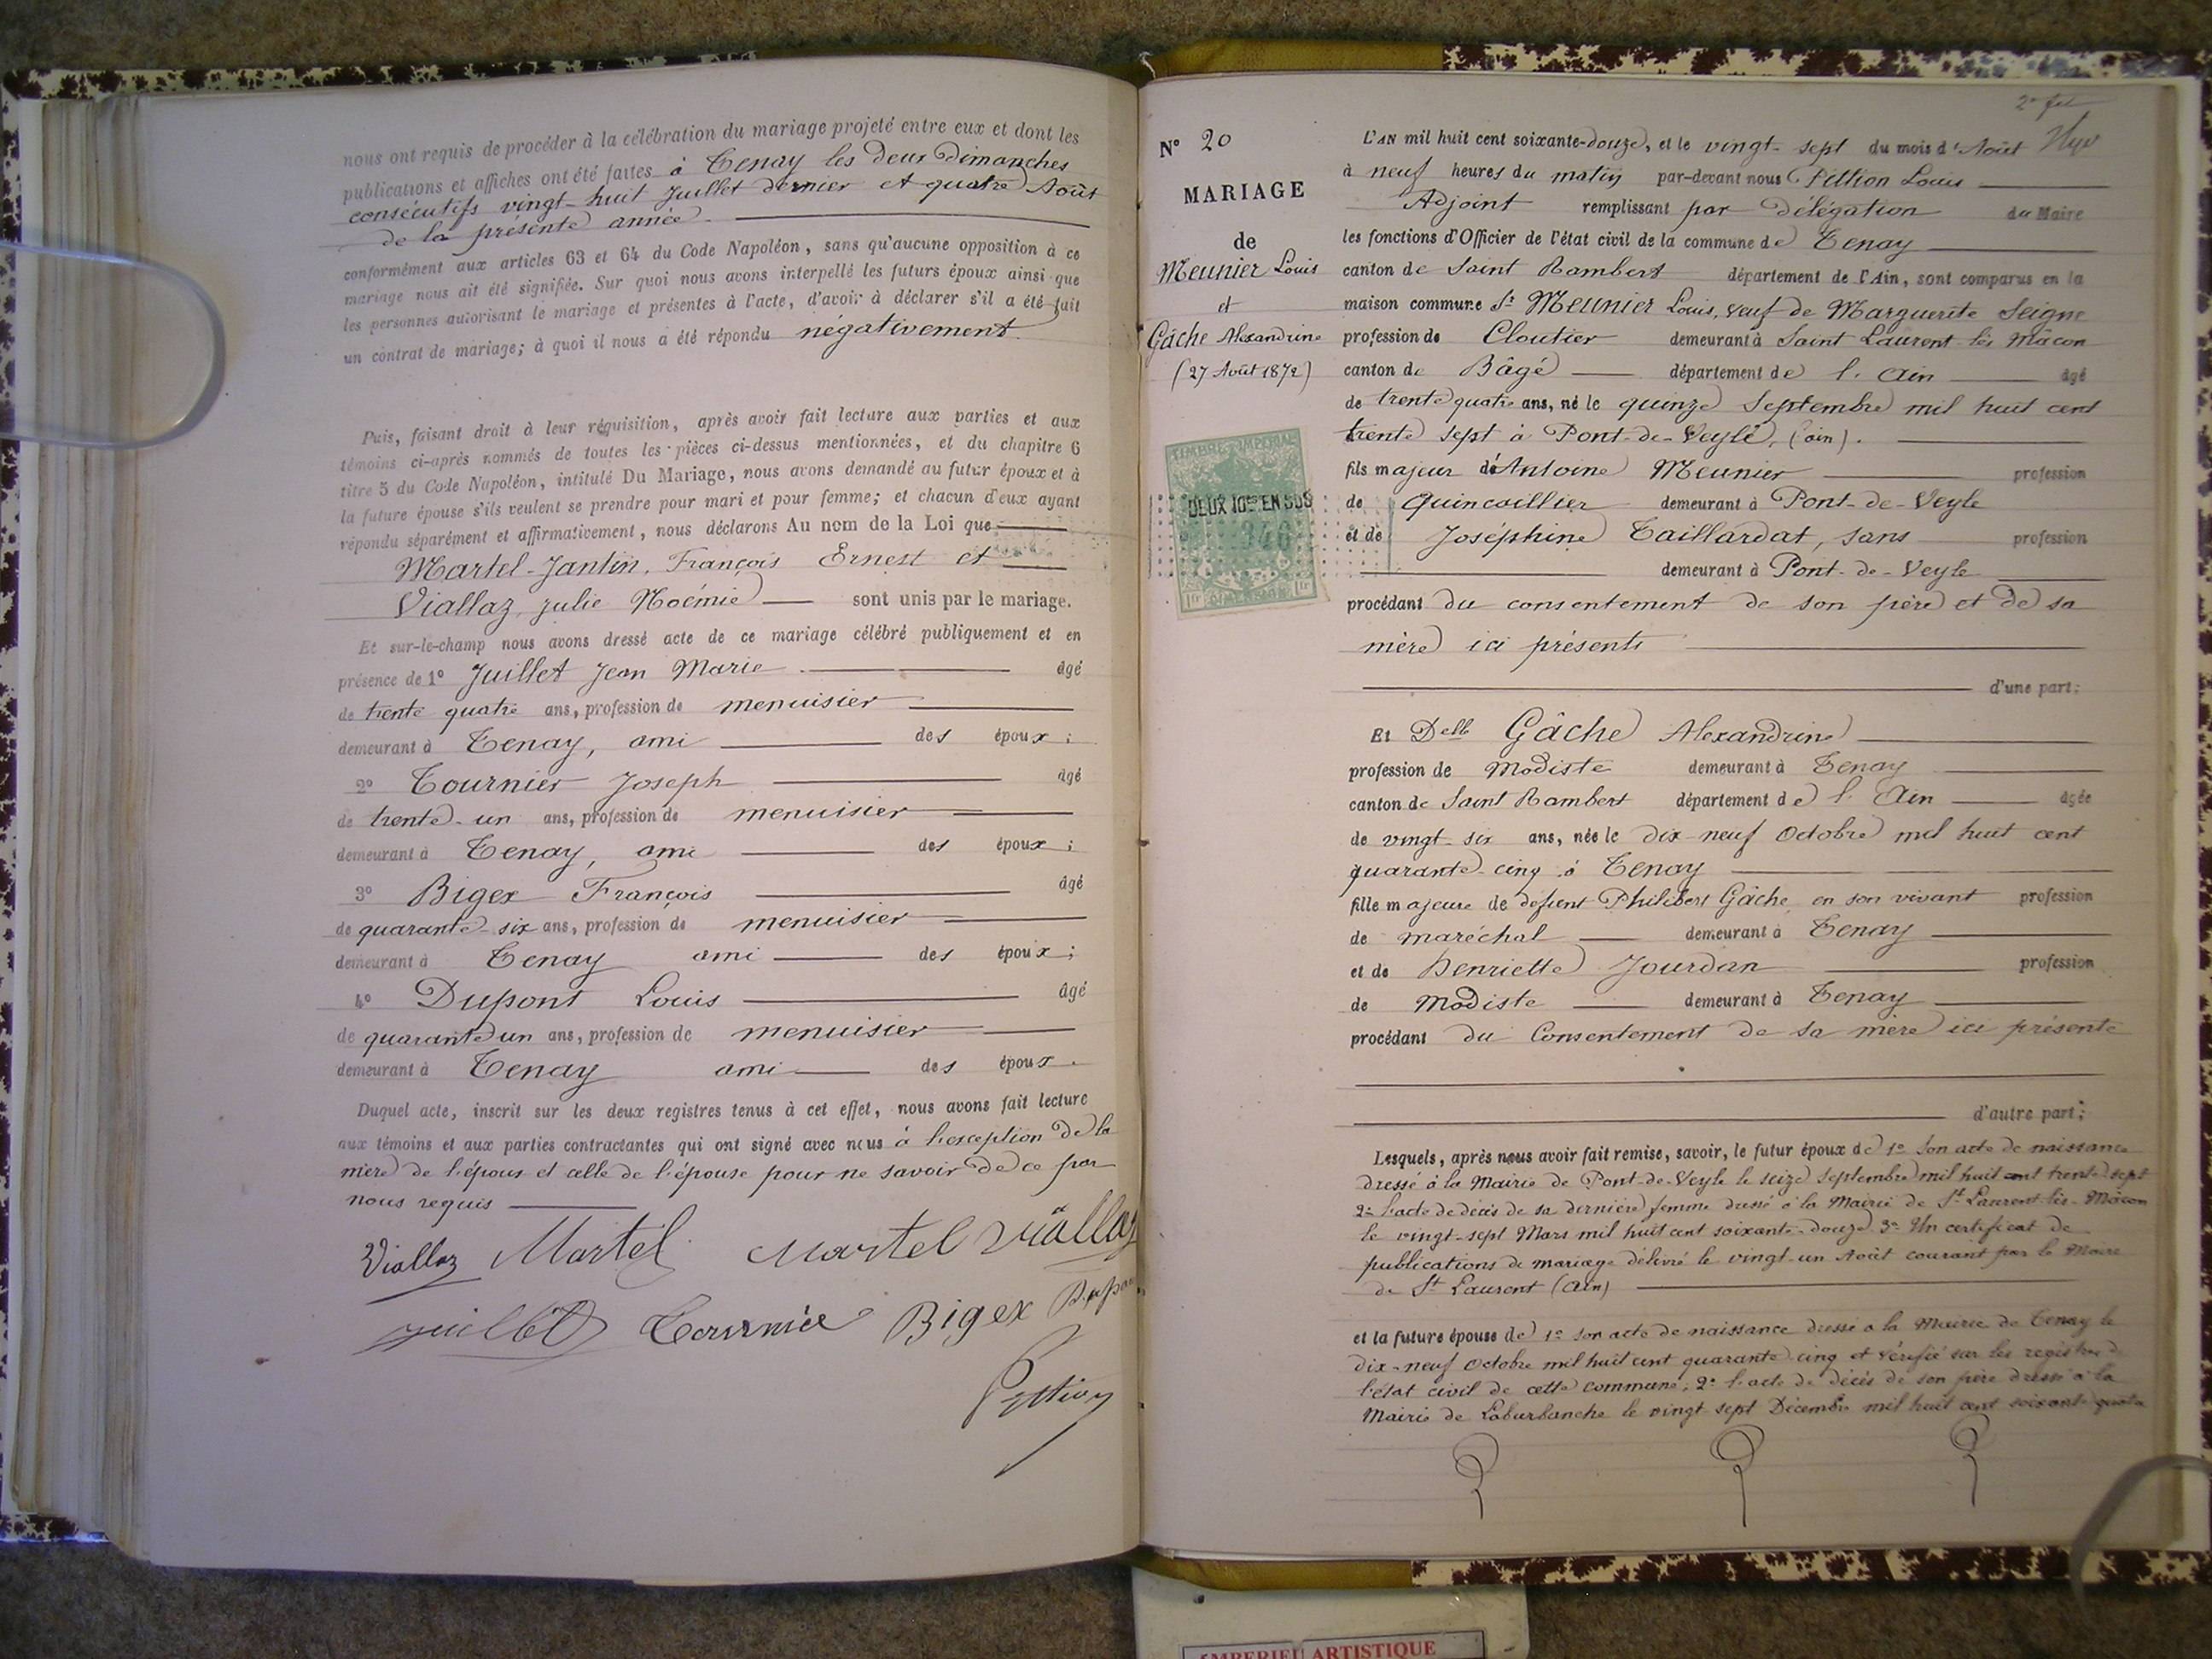 nous ont requis de procéder à la célébration du mariage projeté entre eux et dont les
publications et affiches ont été faites à Tenay les deux Dimanches
consécutifs vingt-huit Juillet dernier et quatre Août
de la présente année
conformément aux articles 63 et 64 du Code Napoléon, sans qu'aucune opposition à ce
mariage nous ait été signifiée. Sur quoi nous avons interpellé les futurs époux ainsi que
les personnes autorisant le mariage et présentes à l'acte, d'avoir à déclarer s'il a été fait
un contrat de mariage; à quoi il nous a été répondu négativement.
Puis, faisant droit à leur réquisition, après avoir fait lecture aux parties et aux
témoins ci-après nommés de toutes les pièces ci-dessus mentionnées, et du chapitre 6
titre 5 du Code Napoléon, intitulé Du Mariage, nous avons demandé au futur époux et à
la future épouse s'ils veulent se prendre pour mari et pour femme; et chacun d'eux ayant
répondu séparément et affirmativement, nous déclarons Au nom de la Loi que
Martel-Jantin, François Ernest et
Viallaz, Julie Noémie sont unis par le mariage.
Et sur-le-champ nous avons dressé acte de ce mariage célébré publiquement et en
présence de 1° Juillet Jean Marie âgé
de trente quatre ans, profession de menuisier
demeurant à Tenay, ami des époux;
2° Tournier Joseph âgé
de trente-un ans, profession de menuisier
demeurant à Tenay, ami des époux;
3° Bigex François âgé
de quarante-six ans, profession de menuisier
demeurant à Tenay ami des époux;
4° Dupont Louis âgé
de quarante un ans, profession de menuisier
demeurant à Tenay ami des époux.
Duquel acte, inscrit sur les deux registres tenus à cet effet, nous avons fait lecture
aux témoins et aux parties contractantes qui ont signé avec nous à l'exception de la
mère de l'époux et celle de l'épouse pour ne savoir de ce par
nous requis
Viallaz Martel Martel Viallaz
Juillet Tournier Bigex Dupont
Pittion
N° 20
MARIAGE
de
Meunier Louis
et
Gâche Alexandrine
(27 Août 1872)
TIMBRE IMPERIAL
DEUX 10mes EN SUS
1fr 1fr
L'AN mil huit cent soixante-douze, et le vingt-sept du mois d'Août
à neuf heures du matin par-devant nous Pittion Louis
Adjoint remplissant par délégation du Maire
les fonctions d'Officier de l'état civil de la commune de Tenay
canton de Saint Rambert département de l'Ain, sont comparus en la
maison commune St Meunier Louis, veuf de Marguerite Seigne
profession de Cloutier demeurant à Saint Laurent-lès Mâcon
canton de Bâgé département de l'Ain âgé
de trente quatre ans, né le quinze Septembre mil huit cent
trente sept à Pont-de-Veyle, (ain).
fils majeur d'Antoine Meunier profession
de Quincaillier demeurant à Pont-de-Veyle
et de Joséphine Taillardat, sans profession
demeurant à Pont-de-Veyle
procédant du consentement de son père et de sa
mère ici présents
d'une part;
Et Delle Gâche Alexandrine
profession de Modiste demeurant à Tenay
canton de Saint Rambert département de l'Ain âgée
de vingt-six ans, née le dix-neuf Octobre mil huit cent
quarante-cinq à Tenay
fille majeure de défunt Philibert Gâche en son vivant profession
de maréchal demeurant à Tenay
et de Henriette Jourdan profession
de Modiste demeurant à Tenay
procédant du Consentement de sa mère ici présente
d'autre part;
Lesquels, après nous avoir fait remise, savoir, le futur époux de 1° Son acte de naissance
dressé à la Mairie de Pont-de-Veyle le seize Septembre mil huit cent trente sept
2° l'acte de décès de sa dernière femme dressé à la Mairie de St Laurent-lès-Mâcon
le vingt-sept Mars mil huit cent soixante-douze 3° Un certificat de
publications de mariage délivré le vingt-un Août courant par le Maire
de St Laurent (Ain)
et la future épouse de 1° Son acte de naissance dressé à la Mairie de Tenay le
dix-neuf Octobre mil huit cent quarante-cinq et vérifié sur les registres de
l'état civil de cette commune; 2° l'acte de décès de son père dressé à la
Mairie de Laburbanche le vingt-sept Décembre mil huit cent soixante quatre
ARTISTIQUE